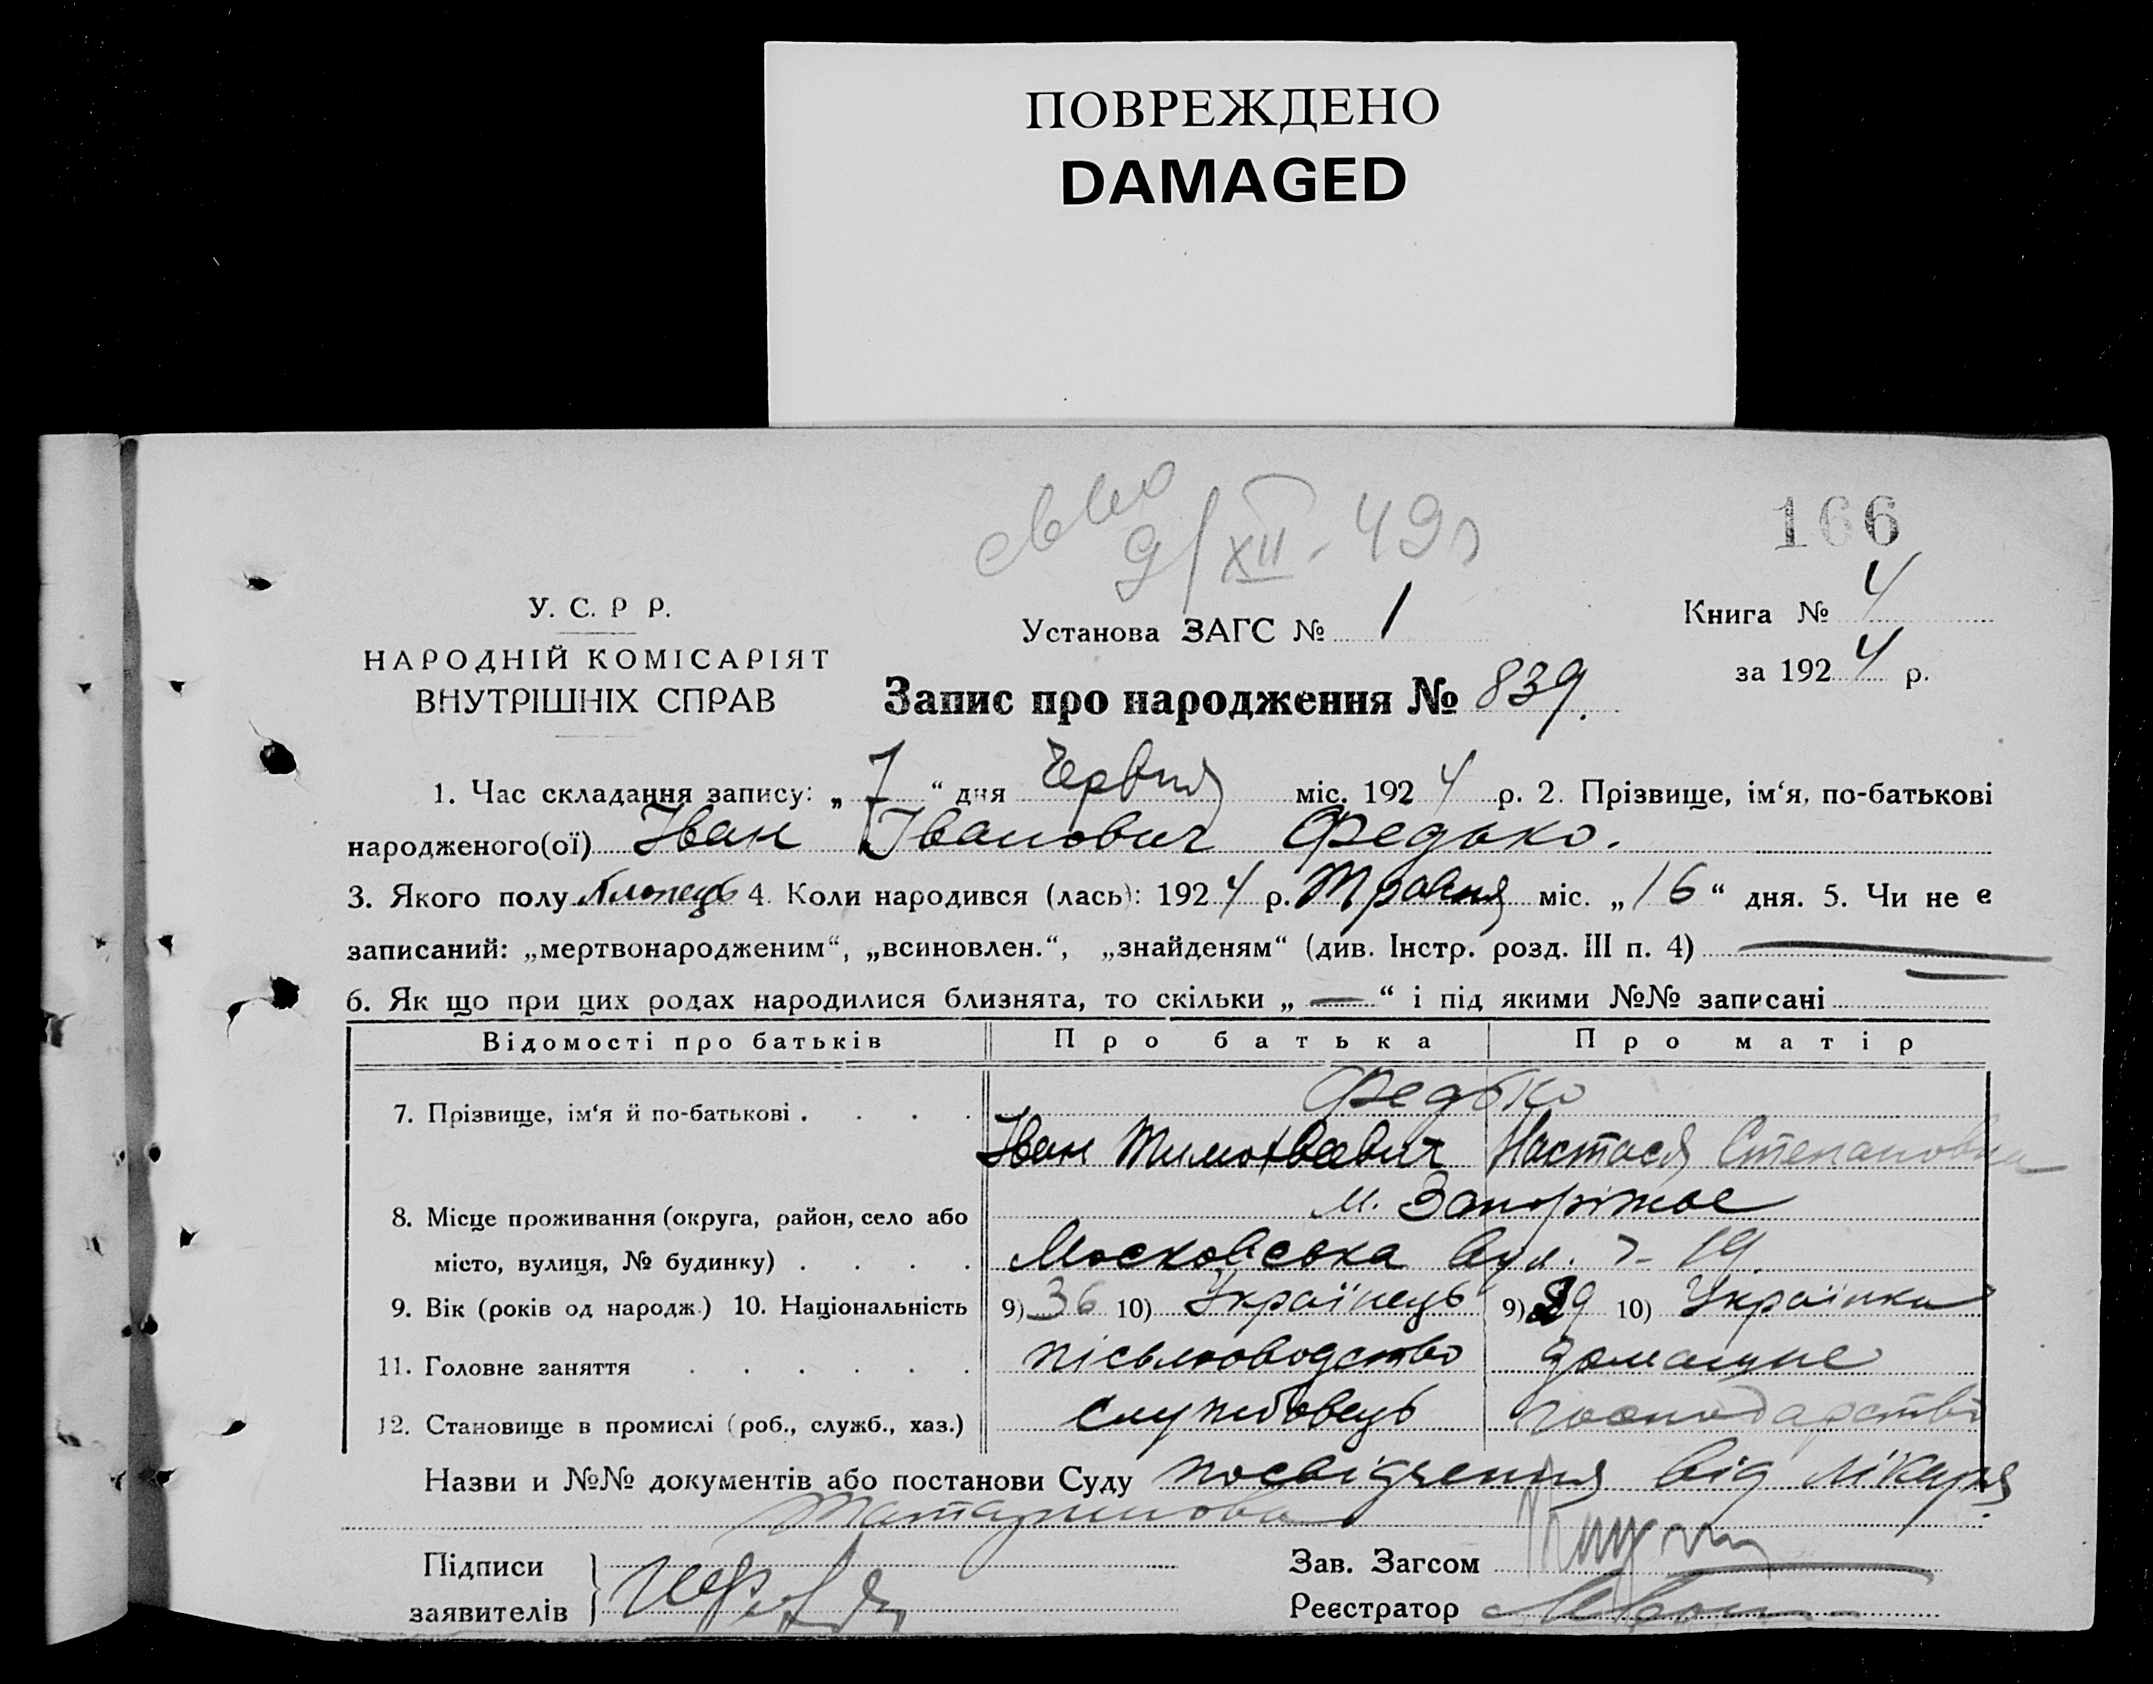 ПОВРЕЖДЕНО
DAMAGED
9/XII-49г
166
У. С. Р Р.
НАРОДНІЙ КОМІСАРІЯТ
ВНУТРІШНІХ СПРАВ
Установа ЗАГС № 1
Книга № 4
за 1924 р.
Запис про народження № 839.
1. Час складання запису: „7“ дня Червня міс. 1924 р. 2. Прізвище, ім‘я, по-батькові
народженого(ої) Іван Іванович Федько.
3. Якого полу Хлопець 4. Коли народився (лась): 1924 р. Травня міс. „16“ дня. 5. Чи не є
записаний: „мертвонародженим“, „всиновлен.“, „знайденям“ (див. Інстр. розд. III п. 4) —
6. Як що при цих родах народилися близнята, то скільки „—“ і під якими №№ записані
Відомості про батьків Про батька Про матір
7. Прізвище, ім‘я й по-батькові . . . . Федько
Іван Тимофѣевич Настася Степановна
8. Місце проживання (округа, район, село або м. Запоріжжє
місто, вулиця, № будинку) . . . . Московська вул. 19
9. Вік (років од народж.) 10. Національність 9) 36 10) Українець 9) 39 10) Українка
11. Головне заняття . . . . . . пісьмоводство домашнє
12. Становище в промислі (роб., служб., хаз.) службовець господарство
Назви и №№ документів або постанови Суду посвідчення від лікаря
Підписи
заявителів
Зав. Загсом
Реєстратор